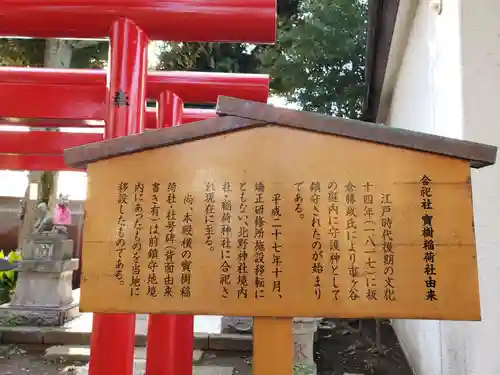 合祀社 寶樹稲荷社由来
江戸時代後期の文化
十四年(一八一七)に板
倉勝政氏により市ヶ谷
の庭内に守護神として
鎮守されたのが始まり
である。
平成二十七年十月、
矯正研修所施設移転に
ともない、東鷲宮神
社・稲荷神社に合祀さ
れ現在に至る。
尚、本殿横の寶樹稲
荷社・社号碑(背面由緒
書き有)は前鎮守地境
内にあったものを当地に
移設したものである。
奉